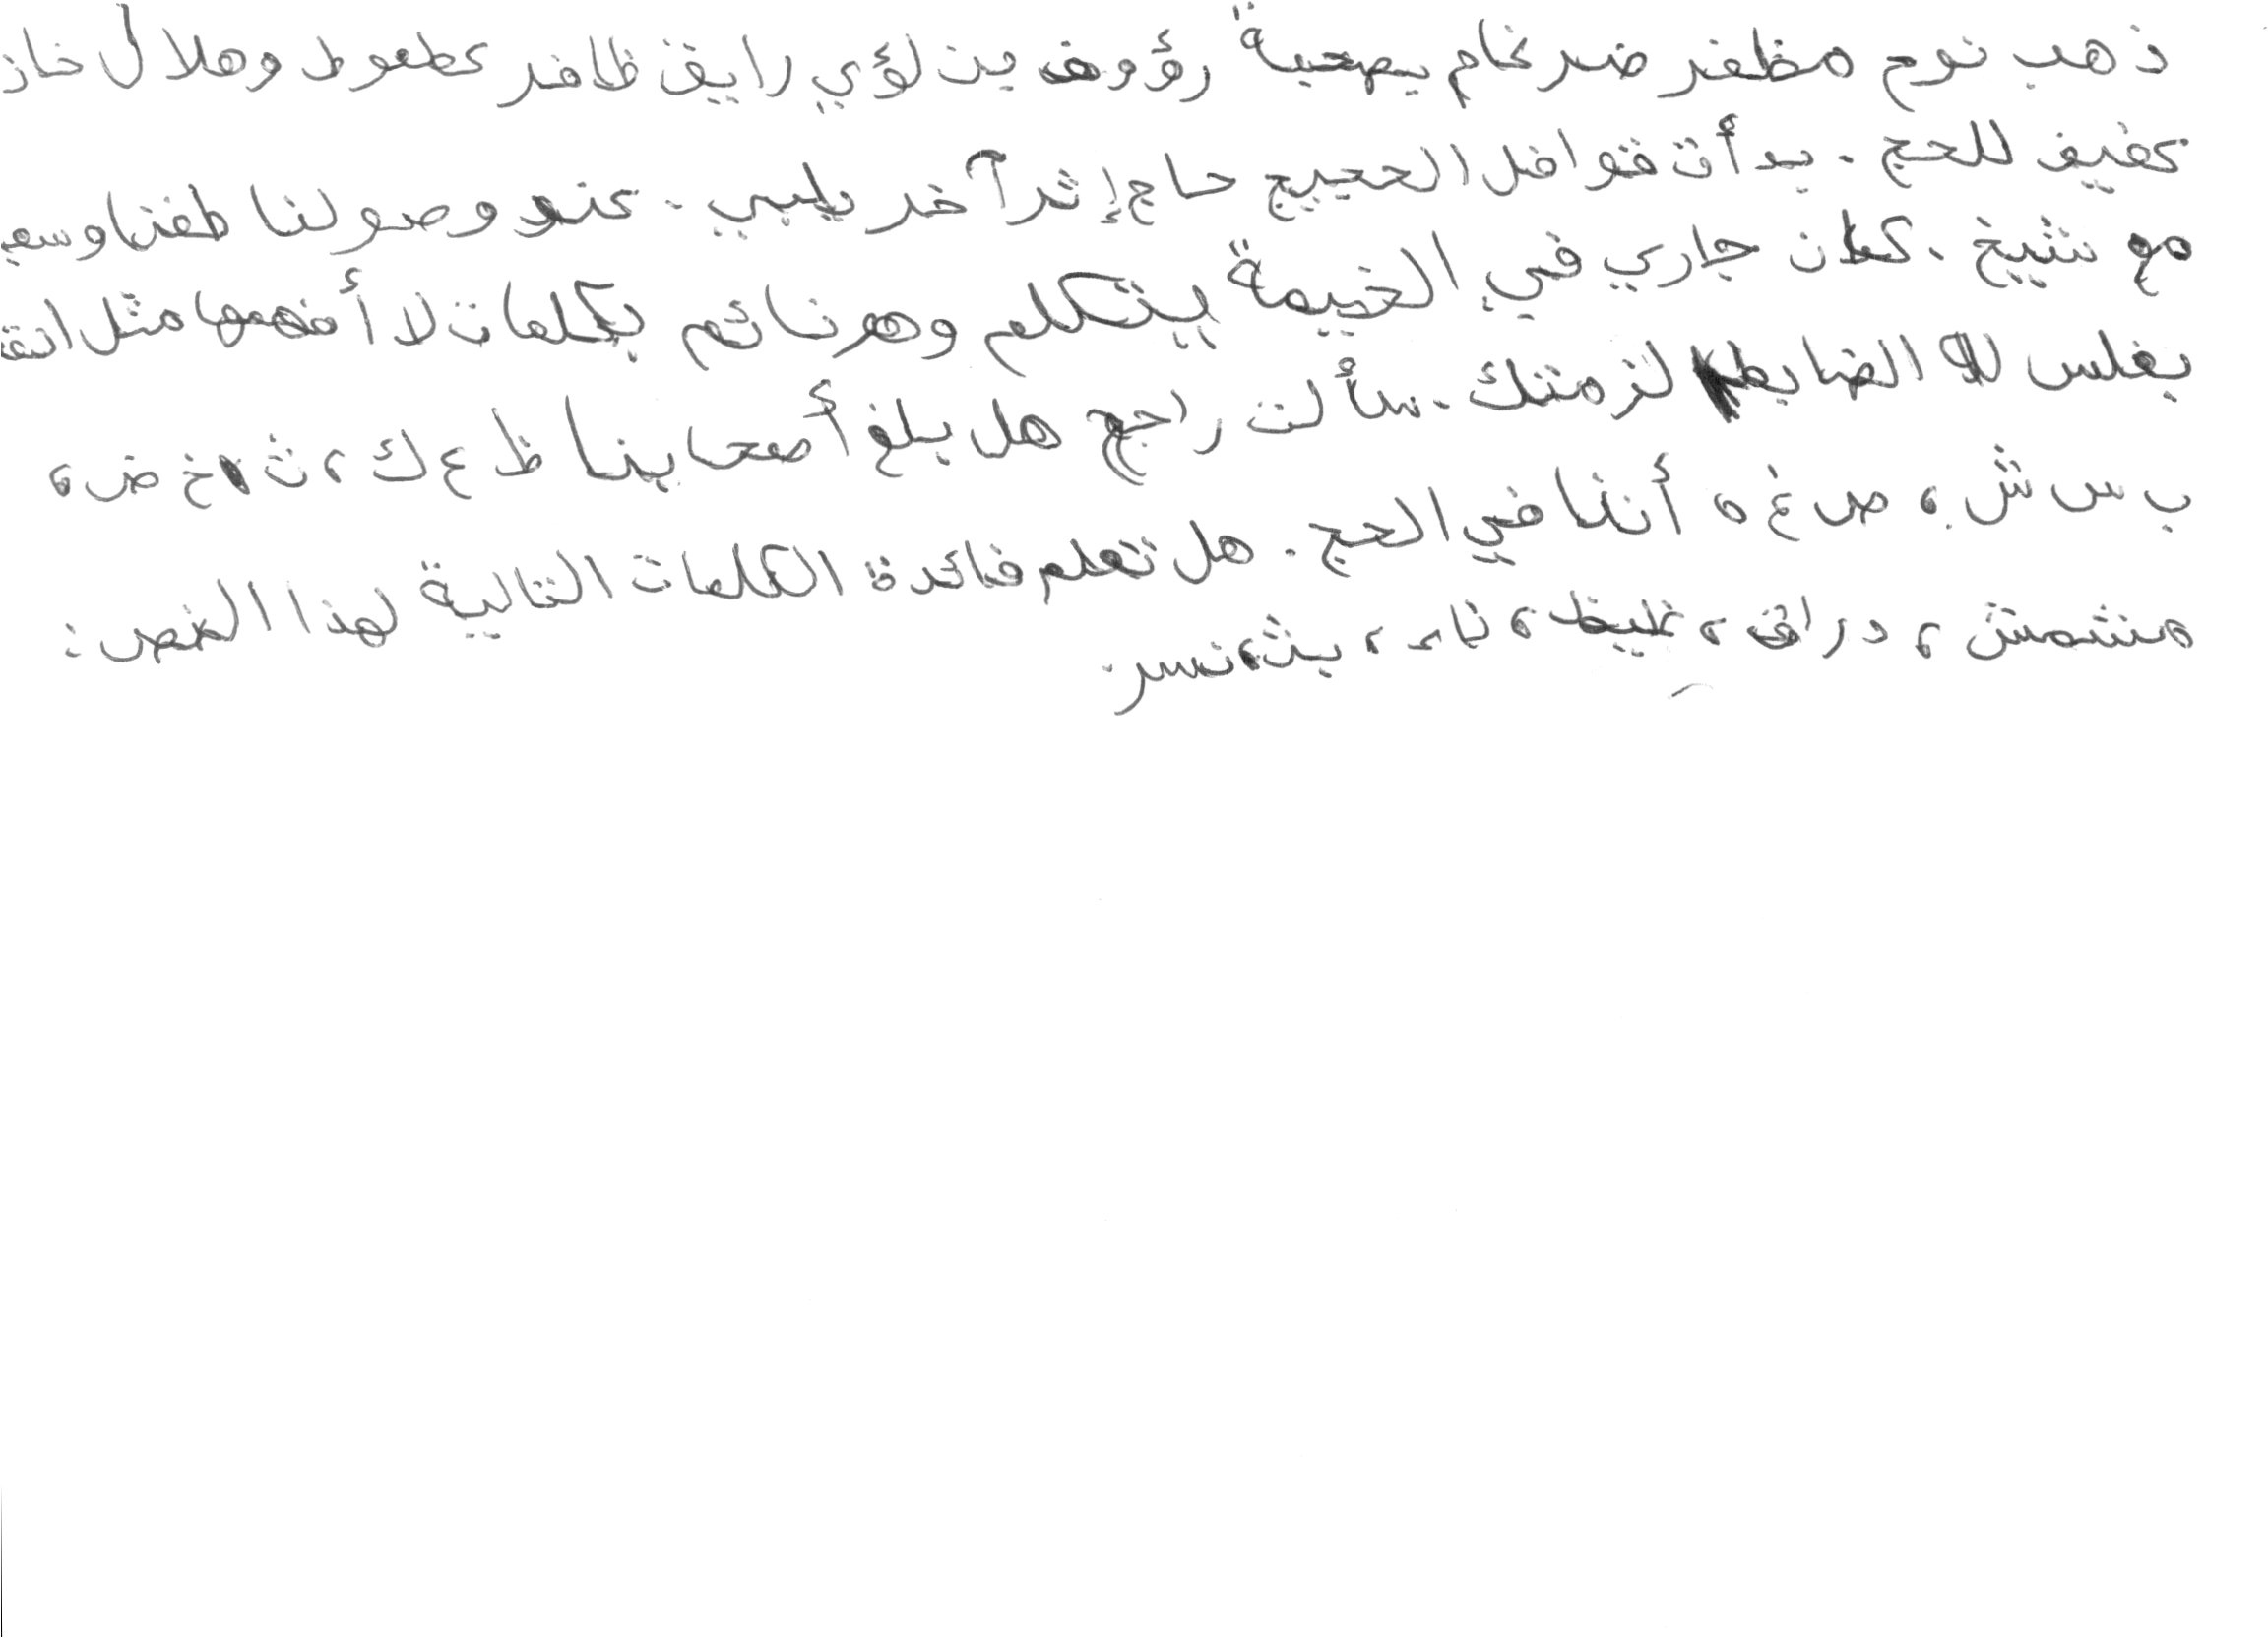 ذهب نوح مظفر ضرغام بصحبة رؤوف بن لؤي رايق ظافر عطعوط وهلال خاز
عفيف للحج . بدأت قوافل الحجيج حاج إثر آخر يلبي . عند وصولنا طفنا وسعي
مع شيخ . كان جاري في الخيمة يتكلم وهو نائم بكلمات لا أفهمها مثل
بغلس الضابط لزمتك . سألت راجح هل بلغ أصحابنا ظ ع ك ، ث خ ض ،
ب س ش ، ص غ ه أننا في الحج . هل تعلم فائدة الكلمات التالية لهذا النص :
مشمش ، دراق ، غليظ ، ناء ، بث ، نسر .